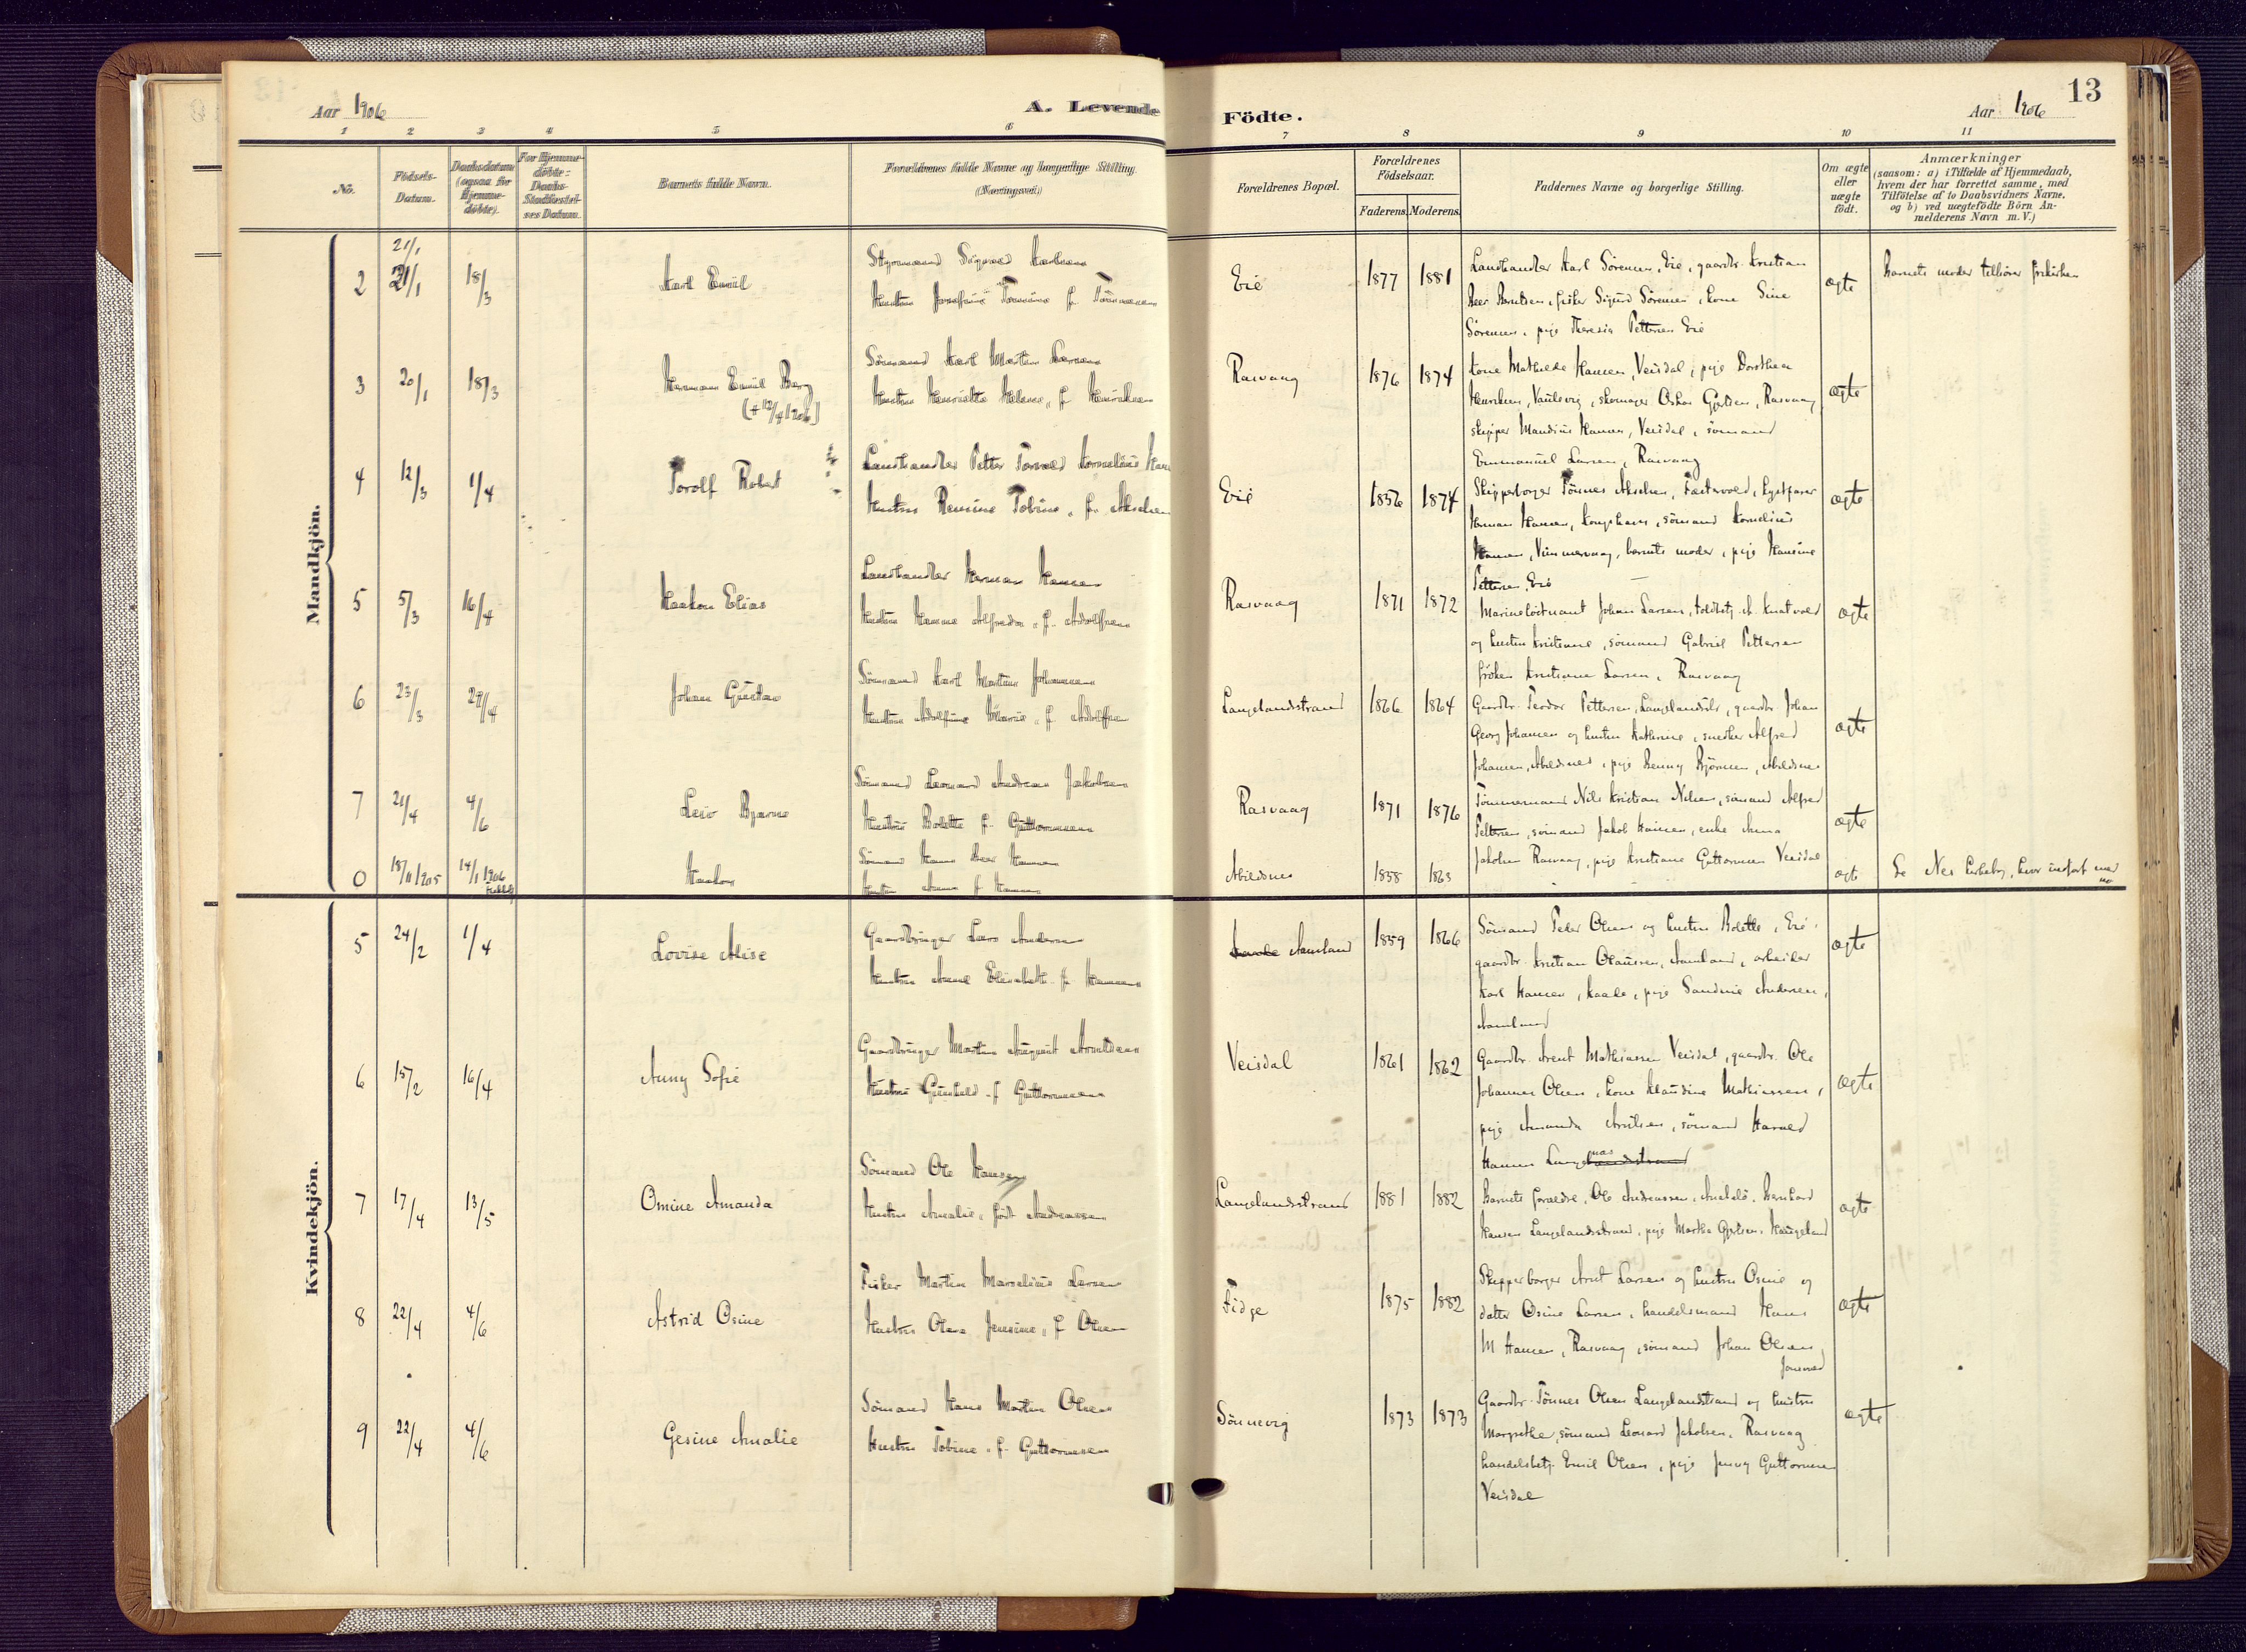 13
Aar 1906
A. Levende Födte.
Aar 1906
1 2 3 4 5 6 7 8 9 10 11
No.
Födsels-Datum.
Daabsdatum (ogsaa for Hjemmedöbte).
For Hjemmedöbte: Daabs-Stadfæstelses Datum.
Barnets fulde Navn.
Forældrenes fulde Navne og borgerlige Stilling.
(Næringsvei)
Forældrenes Bopæl.
Forældrenes Födselsaar.
Faderens. Moderens.
Faddernes Navne og borgerlige Stilling.
Om ægte eller uægte födt.
Anmærkninger
(saasom: a) i Tilfælde af Hjemmedaab,
hvem der har forrettet samme, med
Tilföielse af to Daabsvidners Navne.
og b) ved uægtefödte Börn An-
melderens Navn m. V.)
Mandkjön.
2 21/1 18/3 Karl Emil
Hustru Josefine Tomine f. Tönnessen
Eie 1877 1881
Landhandler Karl Sörensen, Eie, gaardbr. Kristian
Peer Berntsen, fisker Sigurd Sörensen, kone Sine
Sörensen, pige Theresia Pettersen Eie
ægte
Barnets moder tilhörer frikirken
3 20/1 18/3 Herman Emil Berg
Sömand Karl Martin Larsen
Hustru Henriette Helene, f. Henriksen
Rasvaag 1876 1874
kone Mathilde Hansen, Veisdal, pige Dorothea
Henriksen, Vaulsvig, skomager Oskar Gjertsen, Rasvaag
skipper Mandius Hansen, Veisdal, sömand
Emmanuel Larsen, Rasvaag
ægte
4 12/3 1/4 Torolf Robert
Landhandler Petter Torvald Kornelius
Hustru Remine Tobine, f. Akselsen
Eie 1856 1874
Skipperborger Tönnes Akselsen, lystfarer
Herman Hansen, Kongshavn, sömand Kornelius
Hansen, barnets moder, pige Hansine
Pettersen, Eie
ægte
5 5/3 16/4 Haakon Elias
Landhandler Herman Hansen
Hustru Hanne Alfreda, f. Adolfsen
Rasvaag 1871 1872
Marinelöitnant Johan Larsen, toldbetj. A. Knatvold
og hustru Kristiane, sömand Gabriel Pettersen
fröken Kristiane Larsen, Rasvaag
ægte
6 23/3 29/4 Johan Gustav
Sömand Karl Martin Johannesen
Hustru Adolfine Marie, f. Adolfsen
Langelandsstrand 1866 1864
Gaardbr. Teodor Pettersen, Langelandsstr, gaardbr. Johan
Georg Johansen og hustru Kathrine, snedker Alfred
Johansen, Abildsnes, pige Benny Björnsen, Abildsnes
ægte
7 21/4 4/6 Leiv Bjarne
Sömand Leonard Andreas Jakobsen
Hustru Bolette f. Guttormsen
Rasvaag 1871 1876
Tömmermand Nils Kristian Nilsen, sömand Alfred
Pettersen, sömand Jakob Hansen, enke Anna
Jakobsen Rasvaag, pige Kristiane Guttormsen Veisdal
ægte
0 18/11 1905 14/1 1906 Haakon
Sömand Hans Peer Hansen
Hustru Anna f. Hansen
Abildsnes 1858 1863
ægte
Se Nes kirkebog, hvor indfört med no
Kvindekjön.
5 24/2 1/4 Lovise Alise
Gaardbruger Lars Andersen
Hustru Anne Elisabeth f. Hansen
Kaade Aamland 1859 1866
Sömand Peder Olsen og hustru Bolette, Eie,
gaardbr. Kristian Olaussen, Aamland, arbeider
Karl Hansen, Kaade, pige Sandrine Andersen,
Aamland
ægte
6 15/2 16/4 Anny Sofie
Gaardbruger Martin August Arntsen
Hustru Gunhild f. Guttormsen
Veisdal 1861 1862
Gaardbr. Arent Mathiassen Veisdal, gaardbr. Ole
Johannes Olsen, kone Klaudine Mathiassen,
pige Amanda Arntsen, sömand Harald
Hansen Langelandsstrand
ægte
7 17/4 13/5 Omine Amanda
Sömand Ole Hansen
Hustru Amalie, född Andreassen
Langelandsstrand 1881 1882
Barnets forældre, Ole Andreassen, Andabelö, Bernhard
Hansen Langelandsstrand, pige Martha Gjertsen, Haugeland
ægte
8 22/4 4/6 Astrid Osine
Fisker Martin Marselius Larsen
Hustru Olava Jensine, f. Olsen
Fidge 1875 1882
Skipperborger Arnt Larsen og hustru Osine og
datter Osine Larsen, handelsmand Hans
M Hansen, Rasvaag, sömand Johan Olsen
ægte
9 22/4 4/6 Gesine Amalie
Sömand Hans Martin Olsen
Hustru Tobine f. Guttormsen
Sönnevig 1873 1873
Gaardbr. Tönnes Olsen Langelandstrand og hustru
Margrethe, sömand Leonard Jakobsen, Rasvaag
handelsbetj. Emil Olsen, pige Jenny Guttormsen
Veisdal
ægte